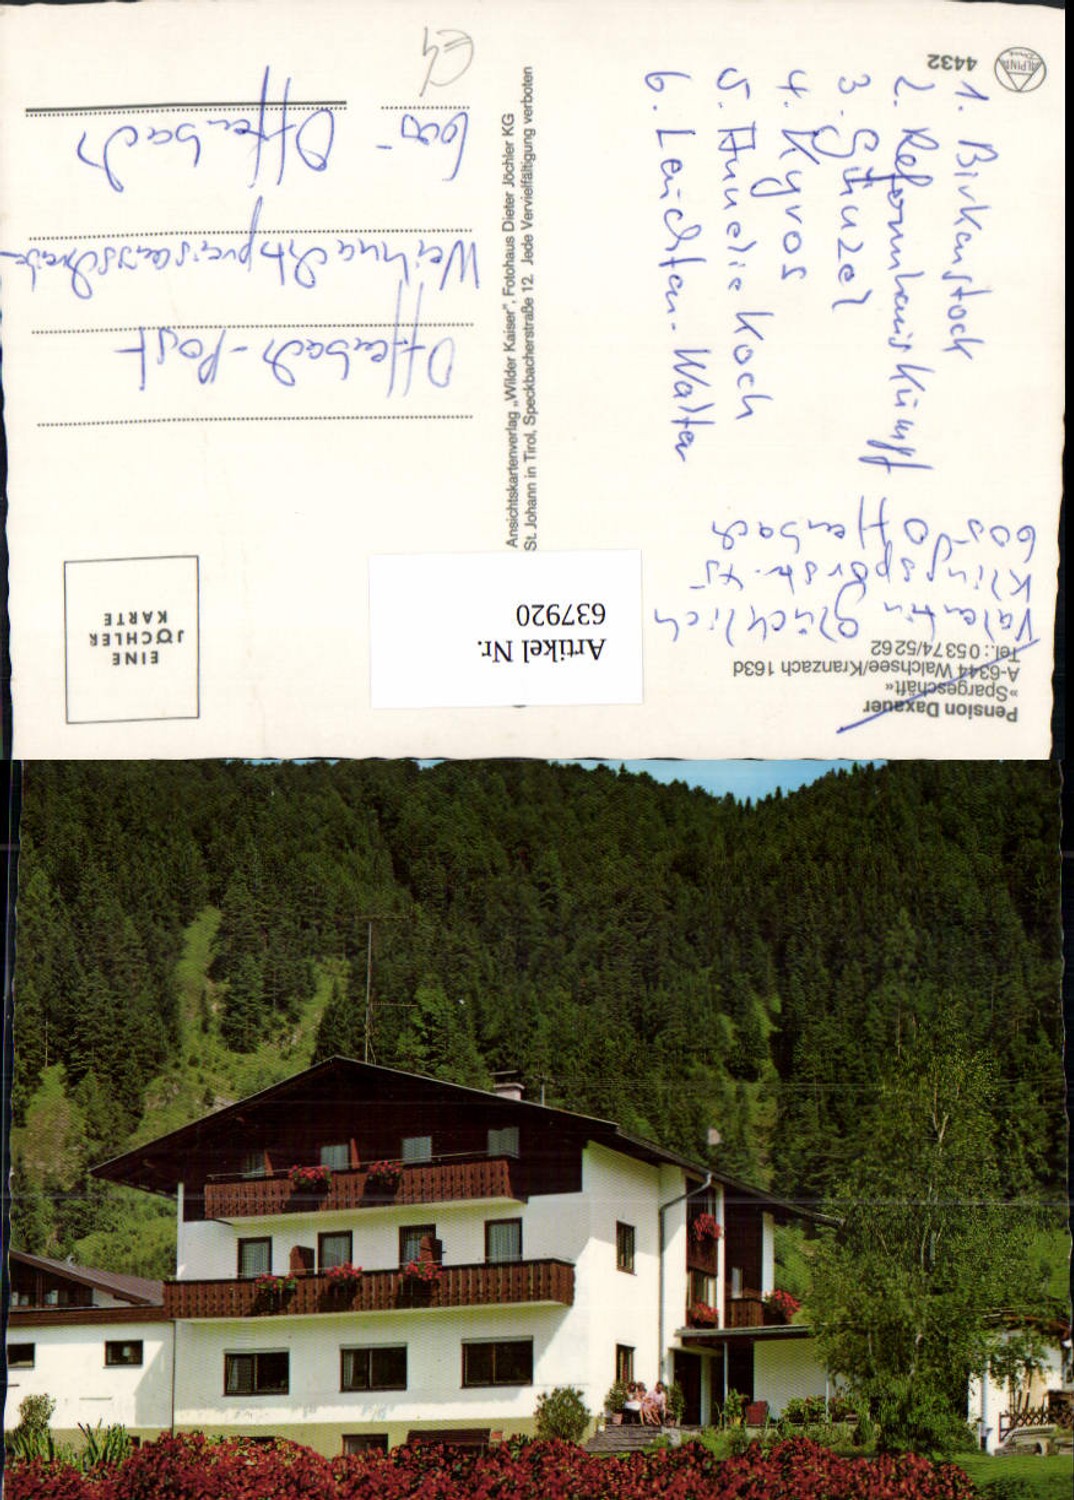 Pension Daxauer
»Spargeschäft«
A-6344 Walchsee/Kranzach 163d
Tel.: 05374/5262
Valentin Glücklich
Klingsporstr. 45
605 Offenbach
1. Birkenstock
2. Reformhaus Kümpf
3. Stinzel
4. Kyros
5. Annelie Koch
6. Leuchten-Walter
4432
ALPINA
Druck
Ansichtskartenverlag „Wilder Kaiser“, Fotohaus Dieter Jöchler KG
St. Johann in Tirol, Speckbacherstraße 12. Jede Vervielfältigung verboten
Artikel Nr.
637920
EINE
JÖCHLER
KARTE
Offenbach-Post
Weihnachtspreisausschreiben
605 - Offenbach